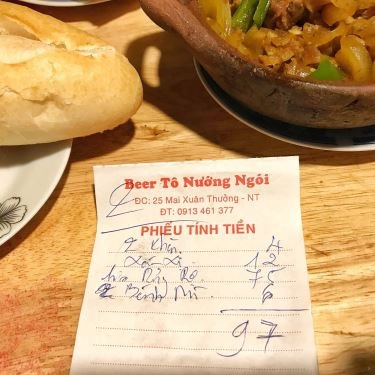 Beer Tô Nướng Ngói
2
ĐC: 25 Mai Xuân Thưởng - NT
ĐT: 0913 461 377
PHIẾU TÍNH TIỀN
2 Khăn 4
12
75
2 Bánh Mì 6
97